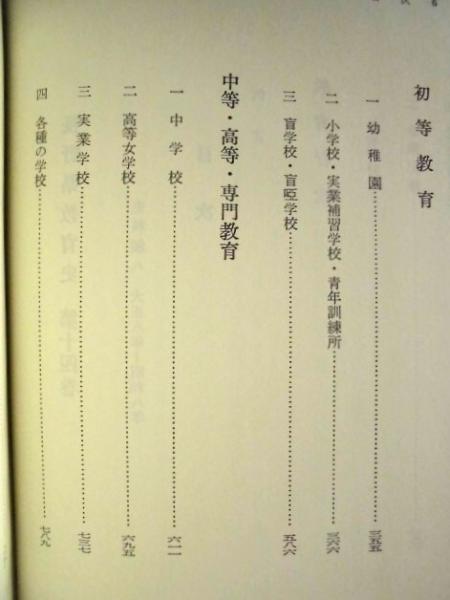 初等教育
一 幼稚園……三五五
二 小学校・実業補習学校・青年訓練所……三六六
三 盲学校・盲啞学校……五八六
中等・高等・専門教育
一 中学校……六一一
二 高等女学校……六九五
三 実業学校……七三七
四 各種の学校……七八九